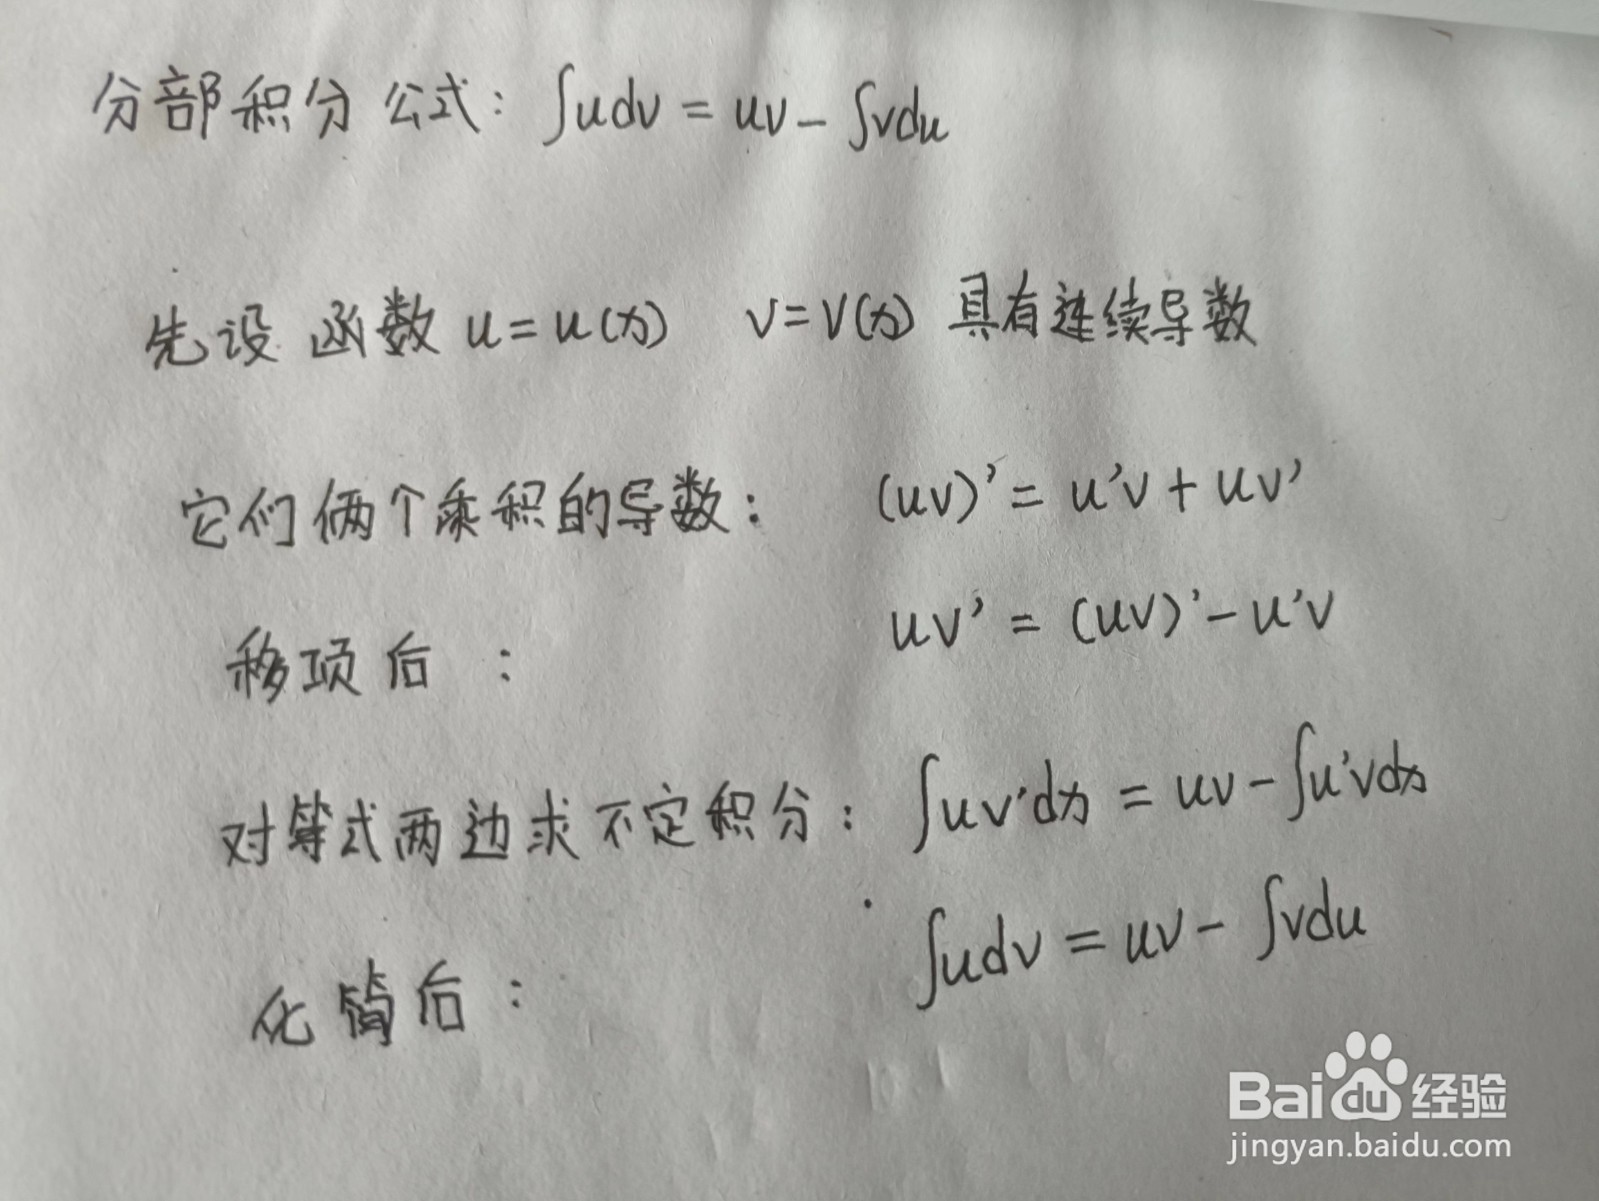 分部积分公式: ∫udv = uv - ∫vdu
先设函数 u=u(x) v=v(x) 具有连续导数
它们俩个乘积的导数: (uv)'= u'v + uv'
移项后: uv' = (uv)'- u'v
对等式两边求不定积分: ∫uv'dx = uv - ∫u'vdx
化简后: ∫udv = uv - ∫vdu
Bai du 经验
jingyan.baidu.com